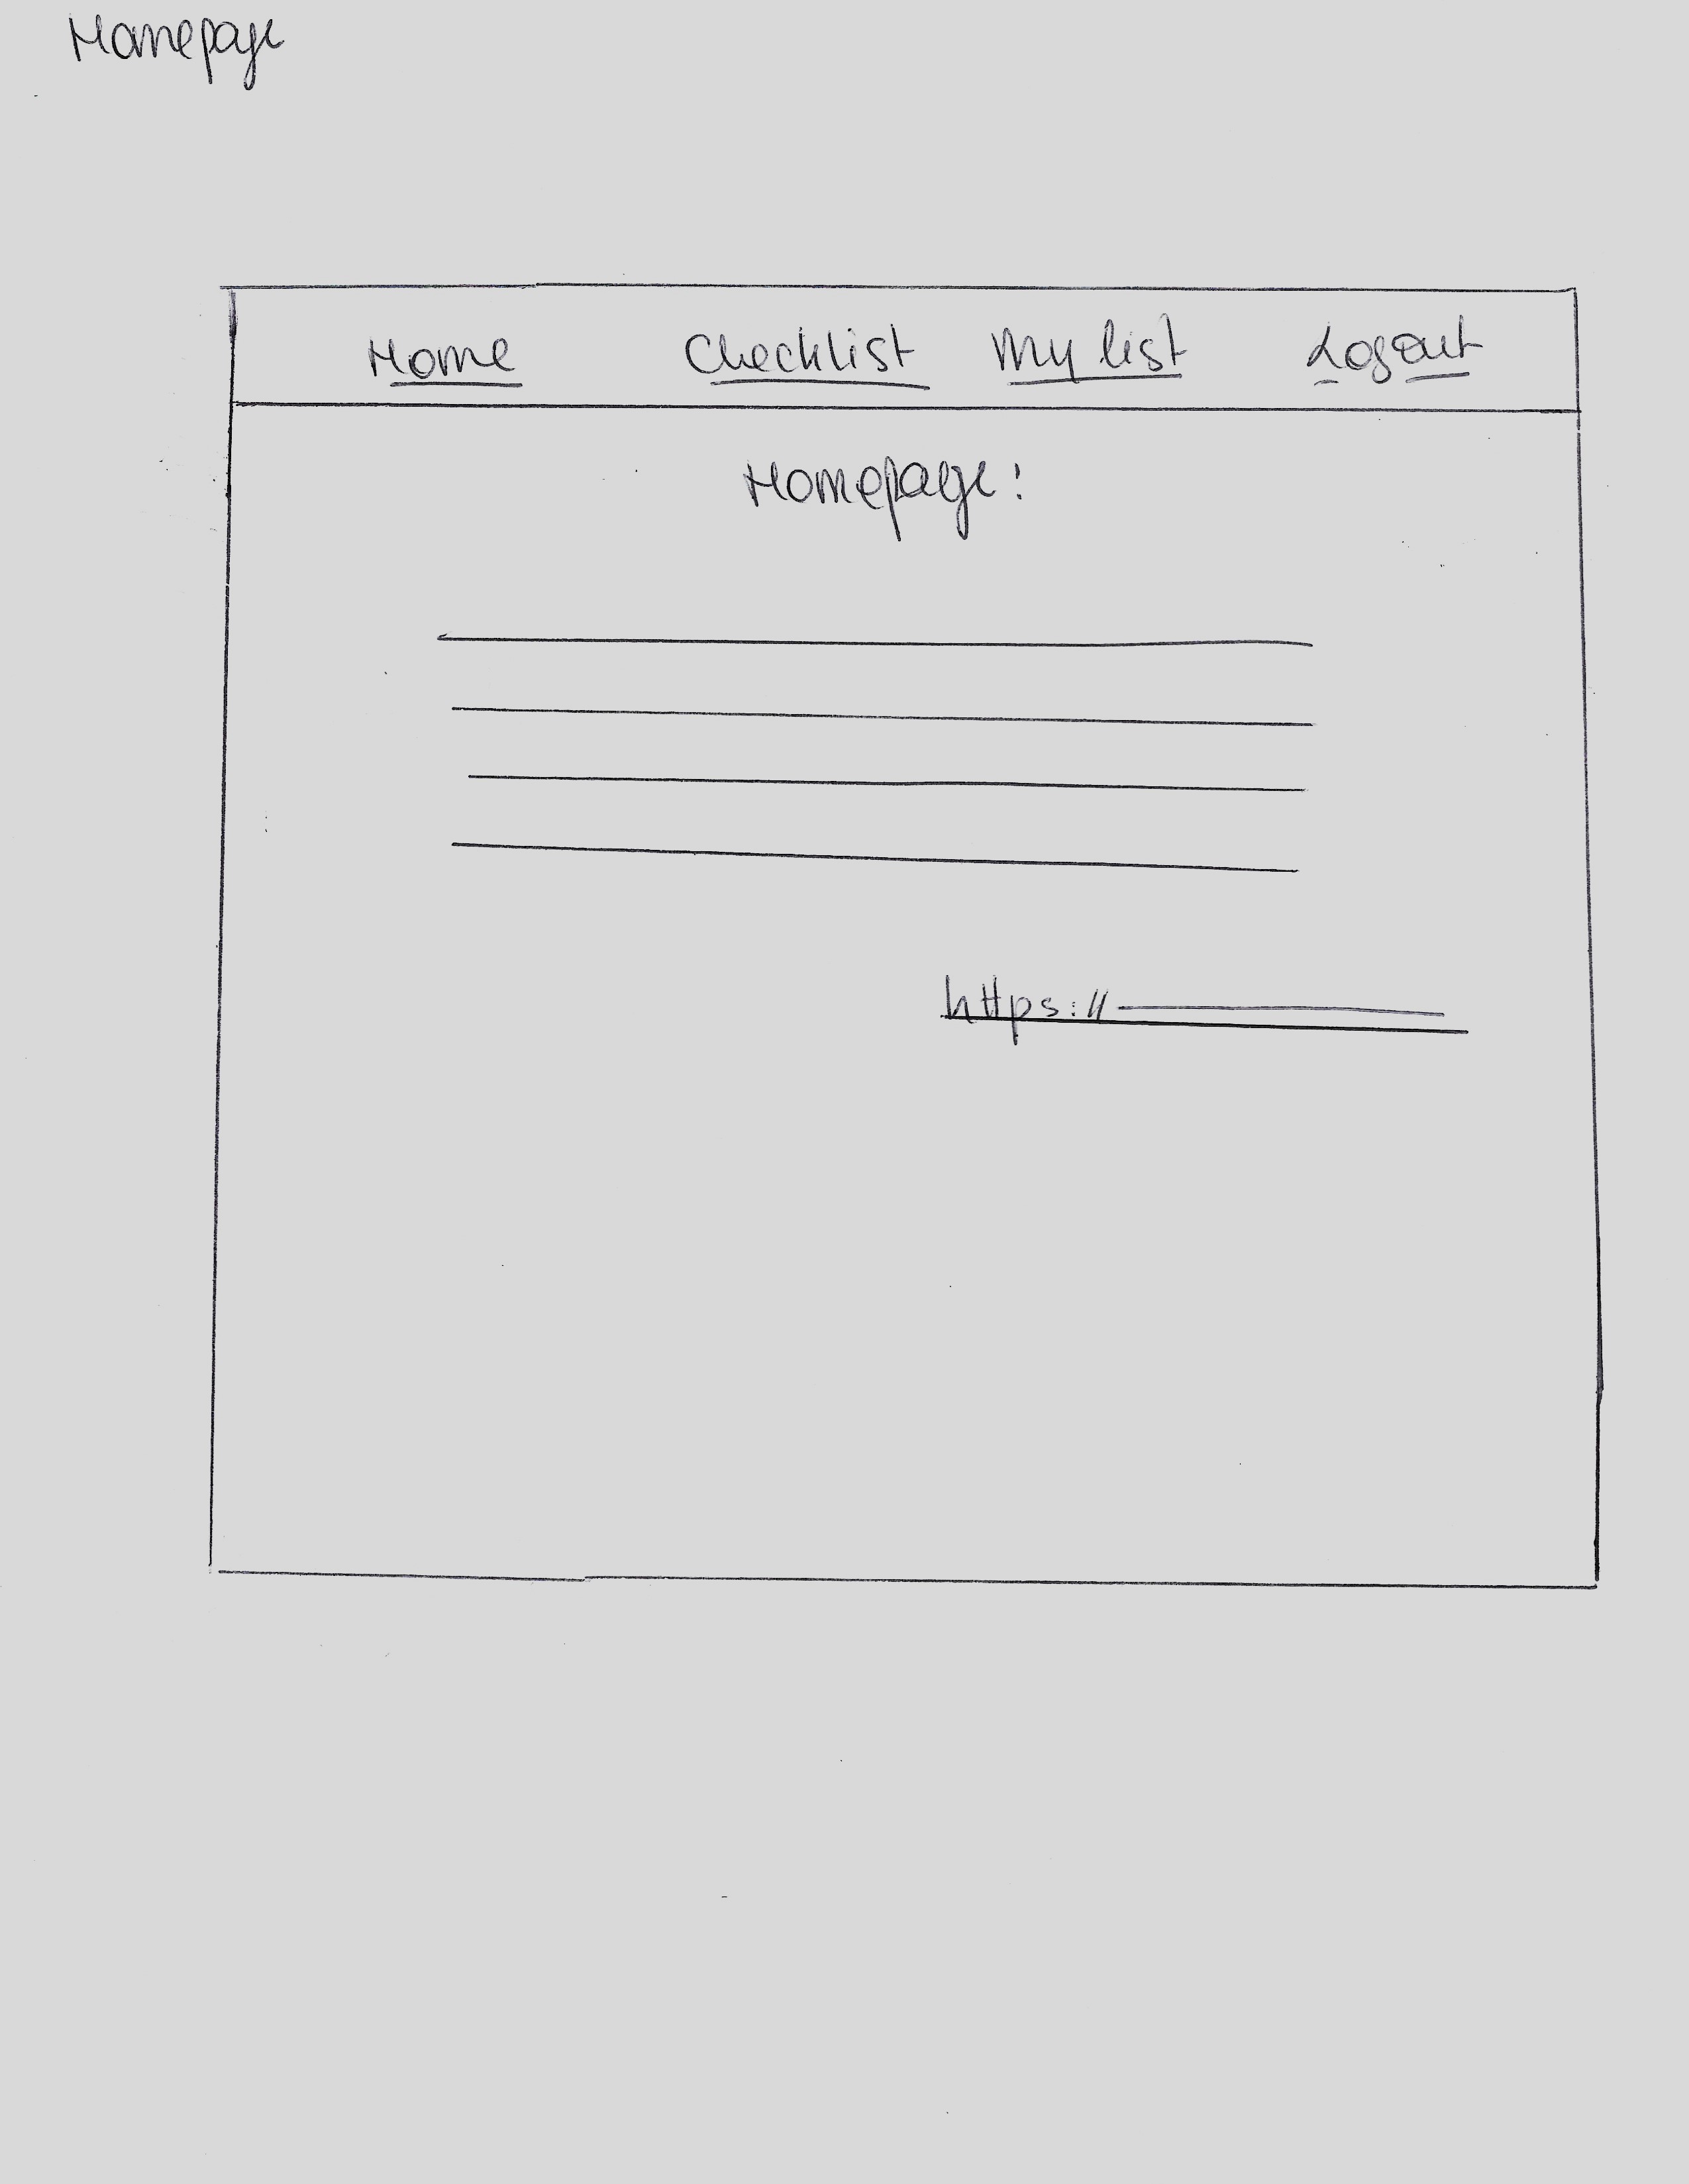 Homepage
Home Checklist My list Logout
Homepage:
https://